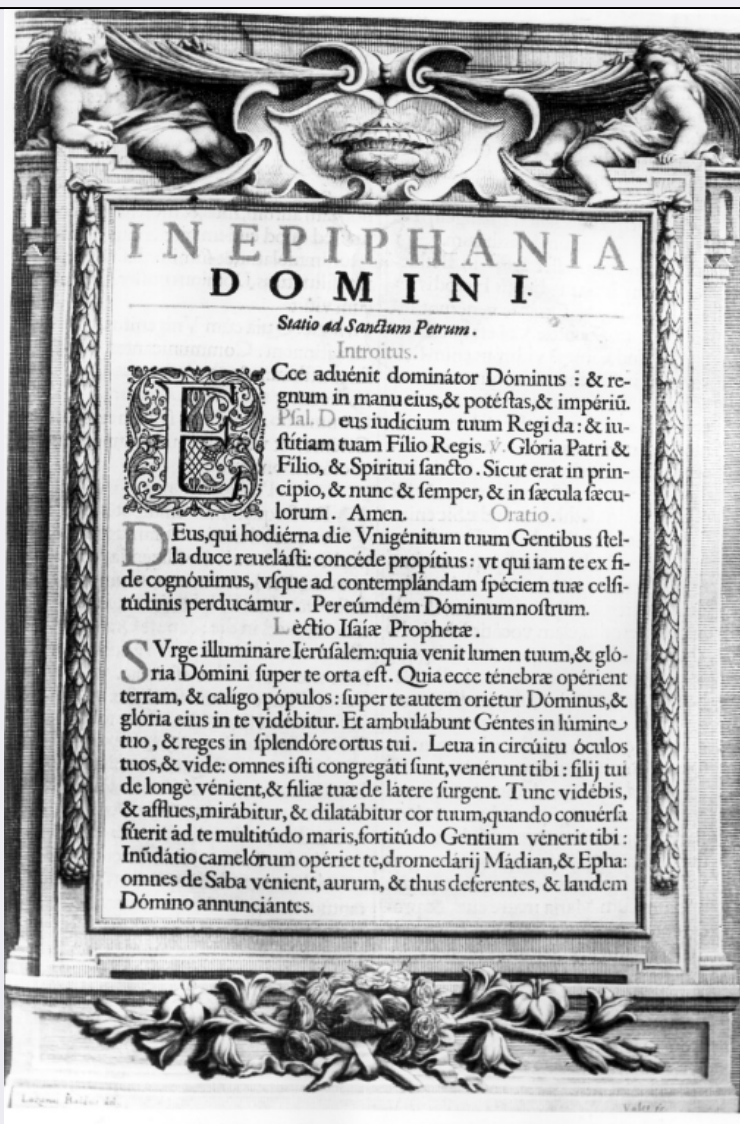 IN EPIPHANIA
DOMINI.
Statio ad Sanctum Petrum.
Introitus.
ECce aduénit dominátor Dóminus : & re-
gnum in manu eius, & potéſtas, & impériū.
Pſal. Deus iudícium tuum Regi da : & iu-
ſtítiam tuam Fílio Regis. ℣. Glória Patri &
Fílio, & Spirítui ſancto. Sicut erat in prin-
cípio, & nunc & ſemper, & in ſæcula ſæcu-
lorum. Amen. Oratio.
DEus, qui hodiérna die Vnigénitum tuum Gentibus ſtel-
la duce reueláſti: concéde propítius : vt qui iam te ex fi-
de cognóuimus, vſque ad contemplándam ſpéciem tuæ celſi-
túdinis perducámur. Per eúmdem Dóminum noſtrum.
Lèctio Iſaíæ Prophétæ.
SVrge illumináre Ierúſalem: quia venit lumen tuum, & gló-
ria Dómini ſuper te orta eſt. Quia ecce ténebræ opérient
terram, & calígo pópulos : ſuper te autem oriétur Dóminus, &
glória eius in te vidébitur. Et ambulábunt Géntes in lúmine
tuo, & reges in ſplendóre ortus tui. Leua in circúitu óculos
tuos, & vide: omnes iſti congregáti ſunt, venérunt tibi : filij tui
de longè vénient, & filiæ tuæ de látere ſurgent. Tunc vidébis,
& afflues, mirábitur, & dilatábitur cor tuum, quando conuérſa
fúerit ad te multitúdo maris, fortitúdo Gentium vénerit tibi :
Inūdátio camelórum opériet te, dromedárij Mádian, & Epha:
omnes de Saba vénient, aurum, & thus deferentes, & laudem
Dómino annunciántes.